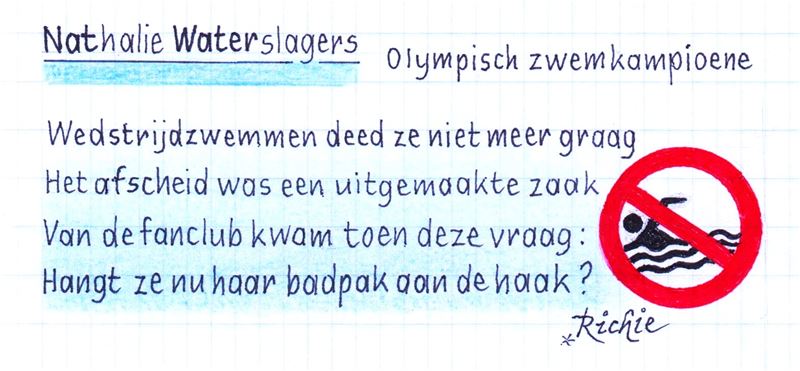 Nathalie Waterslagers Olympisch zwemkampioene
Wedstrijdzwemmen deed ze niet meer graag
Het afscheid was een uitgemaakte zaak
Van de fanclub kwam toen deze vraag:
Hangt ze nu haar badpak aan de haak?
*Richie